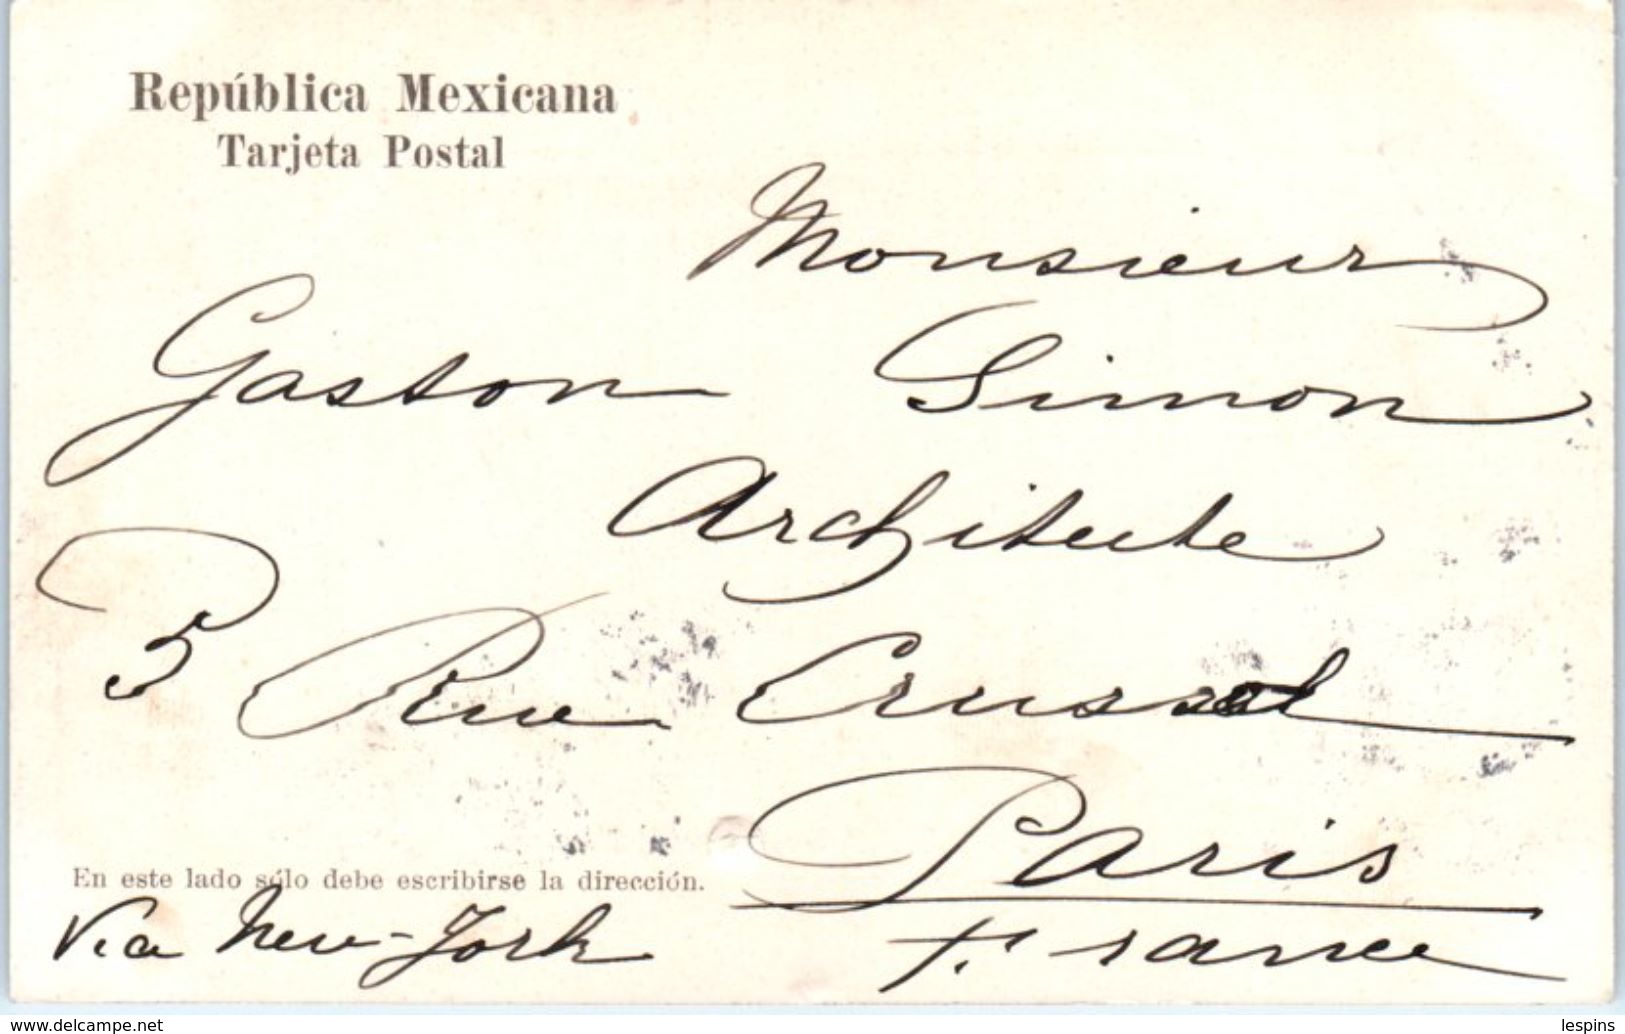 República Mexicana
Tarjeta Postal
Monsieur
Gaston Simon
Architecte
5 Rue Crussol
Paris
France
En este lado sólo debe escribirse la dirección.
Via New-York
www.delcampe.net
lespins